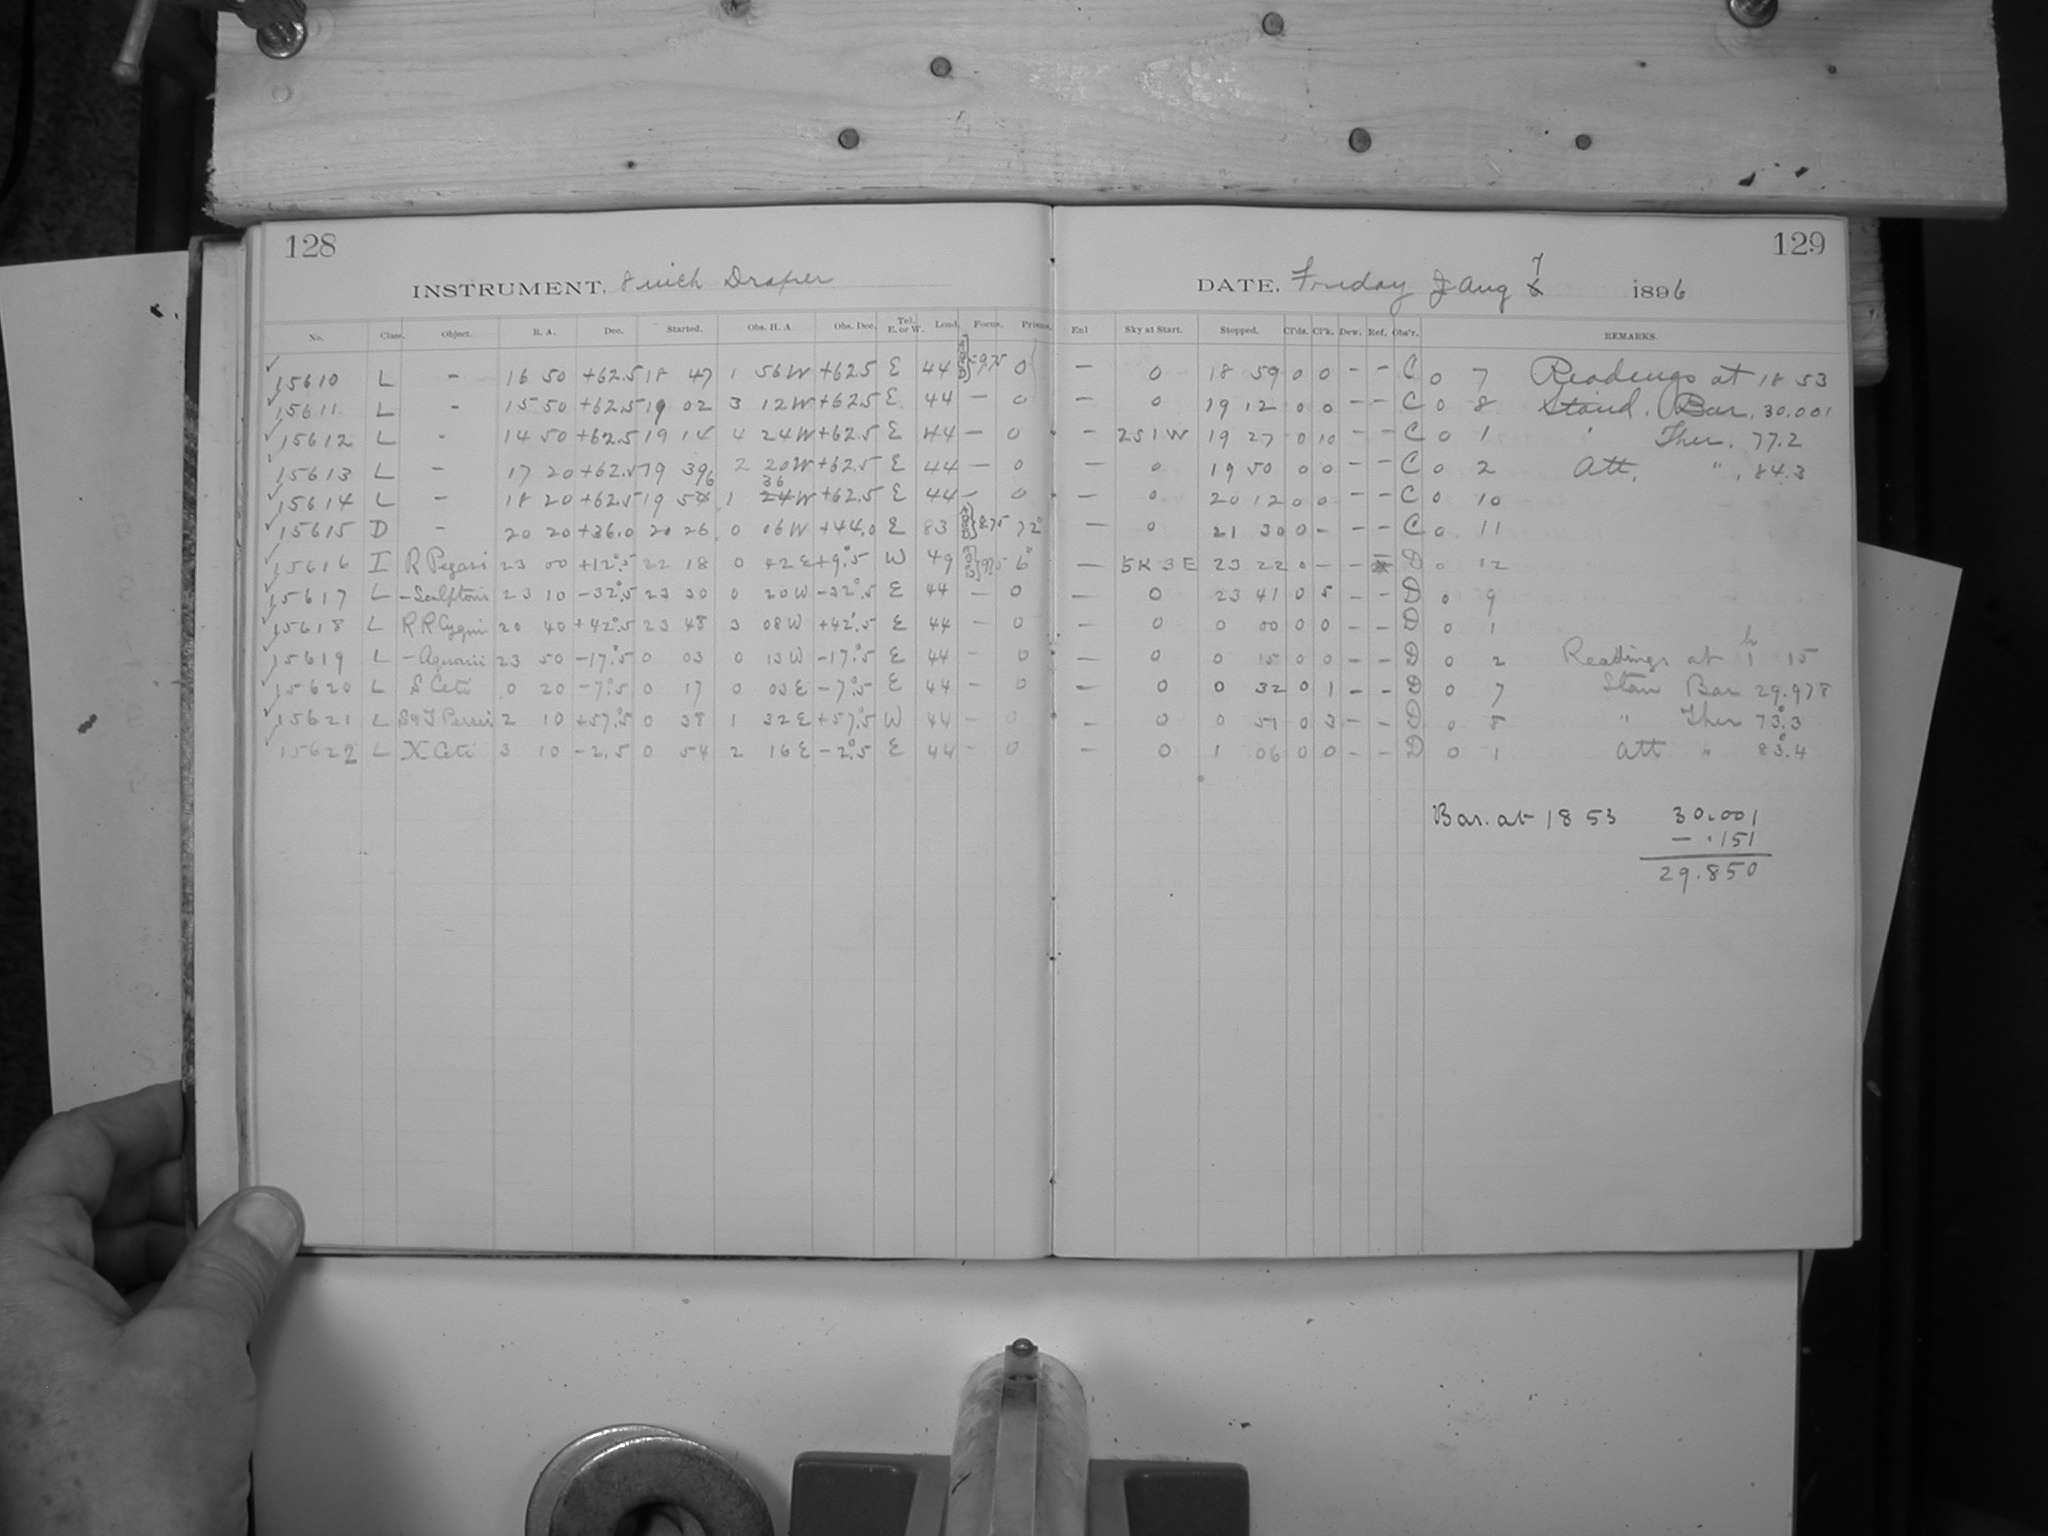 128
INSTRUMENT, 8 inch Draper
No. Class. Object. R. A. Dec. Started. Obs. H. A. Obs. Dec. Tel. E. or W. Load. Focus. Prisms.
15610 L - 16 50 +62.5 18 47 1 56 W +62.5 E 44 9.75 0
15611 L - 15 50 +62.5 19 02 3 12 W +62.5 E 44 - 0
15612 L - 14 50 +62.5 19 14 4 24 W +62.5 E 44 - 0
15613 L - 17 20 +62.5 19 39 2 20 W +62.5 E 44 - 0
15614 L - 18 20 +62.5 19 56 1 36 W +62.5 E 44 - 0
15615 D - 20 20 +36.0 20 26 0 06 W +44.0 E 83 8.75 72°
15616 I R Pegasi 23 00 +12°.5 22 18 0 42 E +9°.5 W 49 6°
15617 L - Sculptoris 23 10 -32°.5 23 30 0 20 W -32°.5 E 44 - 0
15618 L RR Cygni 20 40 +42°.5 23 48 3 08 W +42°.5 E 44 - 0
15619 L - Aquarii 23 50 -17°.5 0 03 0 13 W -17°.5 E 44 - 0
15620 L S Ceti 0 20 -7°.5 0 17 0 03 E -7°.5 E 44 - 0
15621 L S & T Persei 2 10 +57°.5 0 38 1 32 E +57°.5 W 44 - 0
15622 L X Ceti 3 10 -2.5 0 54 2 16 E -2°.5 E 44 - 0
129
DATE, Friday Aug 7 1896
Enl Sky at Start. Stopped. Cl'ds. Cl'k. Dew. Ref. Obs'r. REMARKS.
- 0 18 59 0 0 - - C 0 7 Readings at 18 53
- 0 19 12 0 0 - - C 0 8 Stand. Bar. 30.001
- 2S1W 19 27 0 10 - - C 0 1 " Ther. 77.2
- 0 19 50 0 0 - - C 0 2 Att. " 84.3
- 0 20 12 0 0 - - C 0 10
- 0 21 30 0 - - - C 0 11
- 5N 3E 23 22 0 - - D 0 12
- 0 23 41 0 5 - - D 0 9
- 0 0 00 0 0 - - D 0 1
- 0 0 15 0 0 - - D 0 2 Readings at 1h 15
- 0 0 32 0 1 - - D 0 7 Stan Bar 29.978
- 0 0 51 0 3 - - D 0 8 " Ther 73°.3
- 0 1 06 0 0 - - D 0 1 Att " 83°.4
Bar. at 18 53 30.001
- .151
29.850